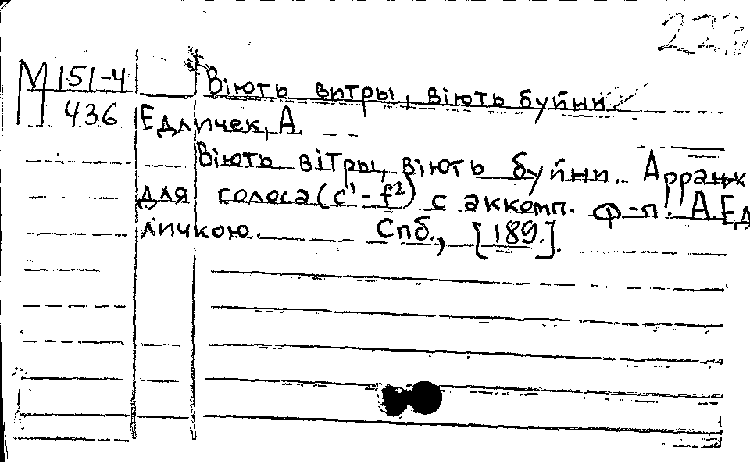 223
М 151-4
Віють витры, віють буйни
П 436
Едличек, А.
Віють вітры, віють буйни. Арранж
для голоса (c¹-f²) с аккомп. ф-п. А. Ед
личкою. Спб., [189.].